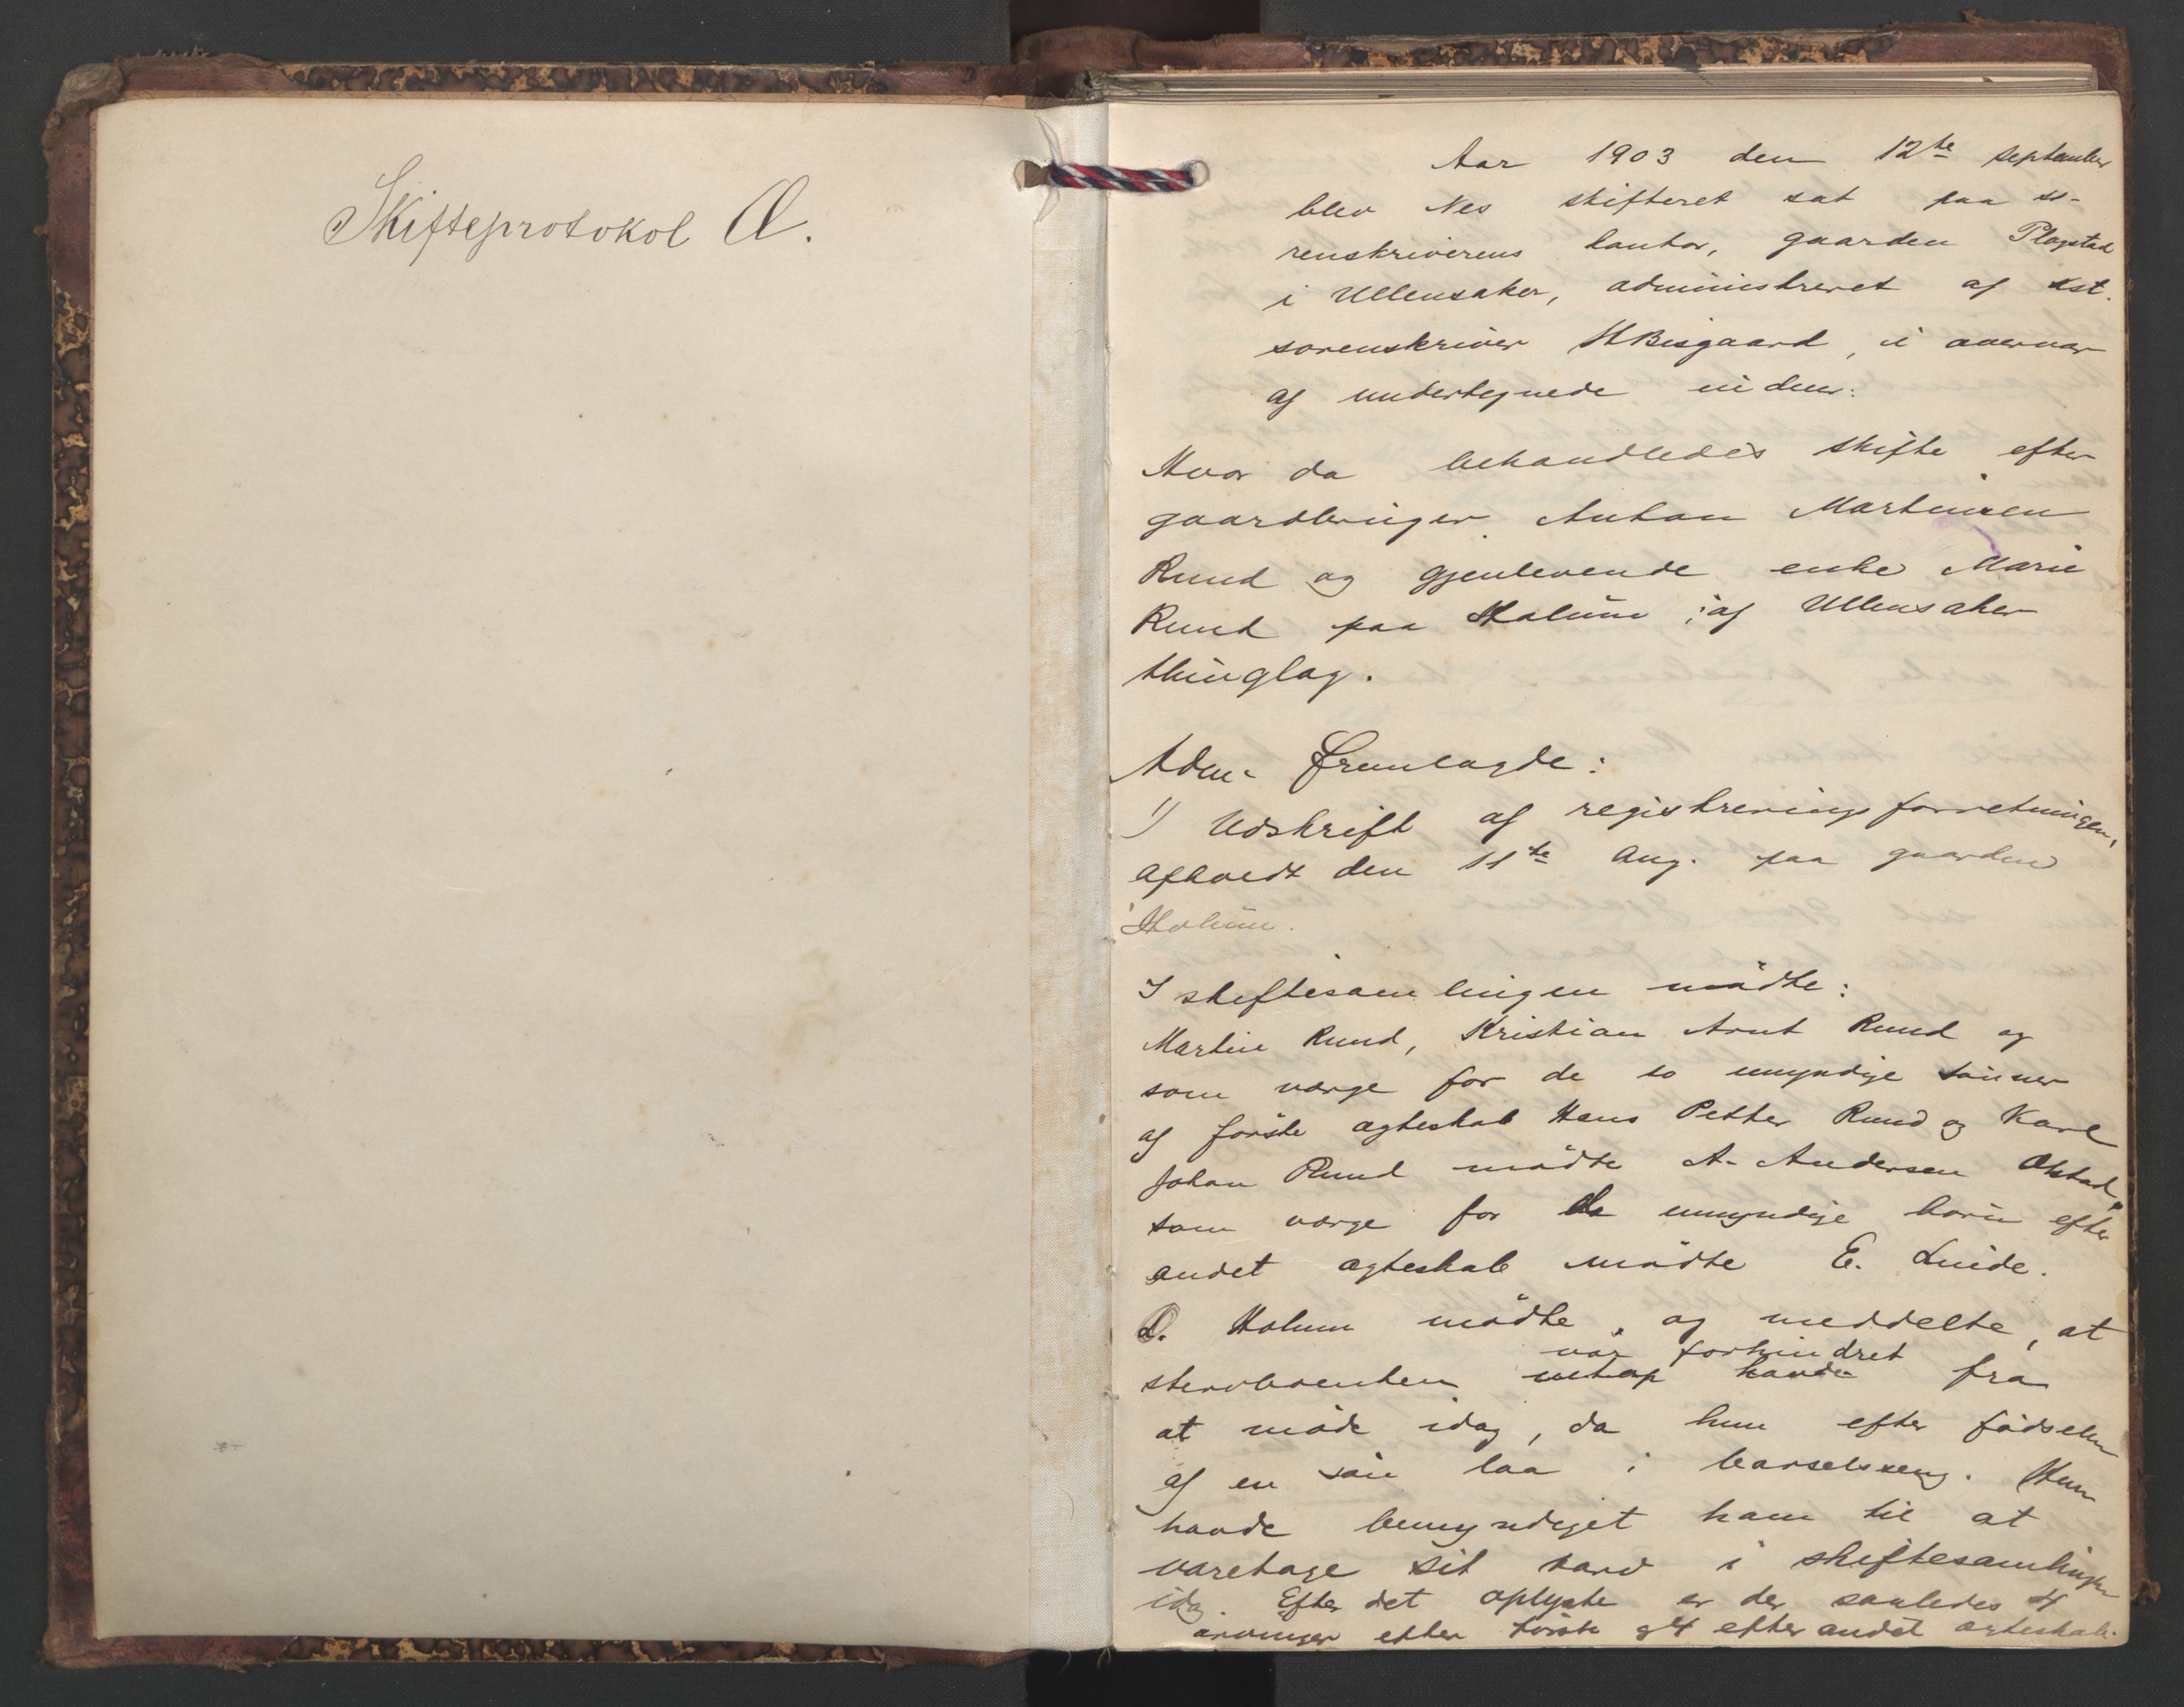 Skifteprotokol Æ.
Aar 1903 den 12te september
blev Nes skifteret sat paa so-
renskriverens kontor, gaarden Plogstad
i Ullensaker, administreret af kst.
sorenskriver H Bisgaard, i overvær
af undertegnede vidner:
Hvor da behandledes skifte efter
gaardbruger Anton Martinsen
Rund og gjenlevende enke Marie
Rund paa Holum, af Ullensaker
thinglag.
Adm. fremlagde:
1) Udskrift af registreringsforretningen,
afholdt den 11te Aug. paa gaarden
Holum.
I skiftesamlingen mødte:
Martin Rund, Kristian Arnt Rund og
som værge for de to umyndige sønner
af første ægteskab Hans Petter Rund og Karl
Johan Rund mødte A. Andersen Økstad,
som værge for de umyndige børn efter
andet ægteskab mødte E. Linde.
O. Holum mødte, og meddelte, at
var forhindret
stervboenken havde fra
at møde idag, da hun efter fødselen
af en søn laa i barselseng. Hun
havde bemyndiget ham til at
varetage sit tarv i skiftesamlingen
idag. Efter det oplyste er der saaledes 4
arvinger efter første og 4 efter andet ægteskab.